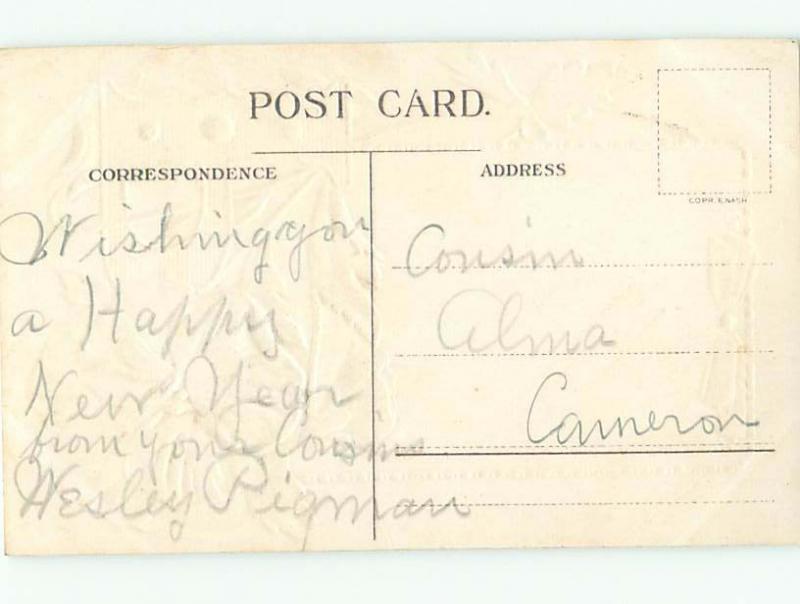 POST CARD.
CORRESPONDENCE
ADDRESS
COPR. E.NASH
Wishing you
a Happy
New Year
from your Cousins
Wesley Pigman
Cousin
Alma
Cameron